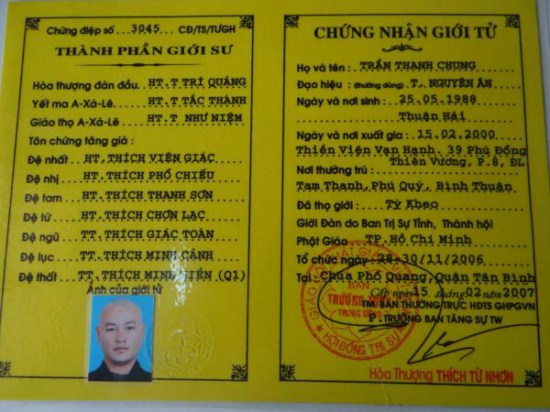 Chứng điệp số ... 3045 ... CĐ/TS/TƯGH
THÀNH PHẦN GIỚI SƯ
Hòa thượng đàn đầu. HT.T TRÍ QUẢNG
Yết ma A-Xà-Lê. HT.T TẮC THÀNH
Giáo thọ A-Xà-Lê. HT.T NHƯ NIỆM
Tôn chứng tăng già :
Đệ nhất HT.THÍCH VIÊN GIÁC
Đệ nhị HT.THÍCH PHỔ CHIẾU
Đệ tam HT.THÍCH THANH SƠN
Đệ tứ HT.THÍCH CHƠN LẠC
Đệ ngũ TT.THÍCH GIÁC TOÀN
Đệ lục TT.THÍCH MINH CẢNH
Đệ thất TT.THÍCH MINH HIỀN (Q1)
Ảnh của giới tử
CHỨNG NHẬN GIỚI TỬ
Họ và tên : TRẦN THANH CHUNG
Đạo hiệu : (thường dùng) T. NGUYÊN ÂN
Ngày và nơi sinh : 25.05.1988
Thuận Hải
Ngày và nơi xuất gia : 15.02.2000
Thiền Viện Vạn Hạnh. 39 Phù Đổng
Thiên Vương, P.8, ĐL
Nơi thường trú :
Tam Thanh, Phú Quý, Bình Thuận
Đã thọ giới : Tỳ Kheo
Giới Đàn do Ban Trị Sự Tỉnh, Thành hội
Phật Giáo TP.Hồ Chí Minh
Tổ chức ngày : 28-30/11/2006
Tại : Chùa Phổ Quang, Quận Tân Bình
Cấp ngày 15 tháng 02 năm 2007
TM. BAN THƯỜNG TRỰC HĐTS GHPGVN
P. TRƯỞNG BAN TĂNG SỰ TW
HỘI ĐỒNG TRỊ SỰ
Hòa Thượng THÍCH TỪ NHƠN